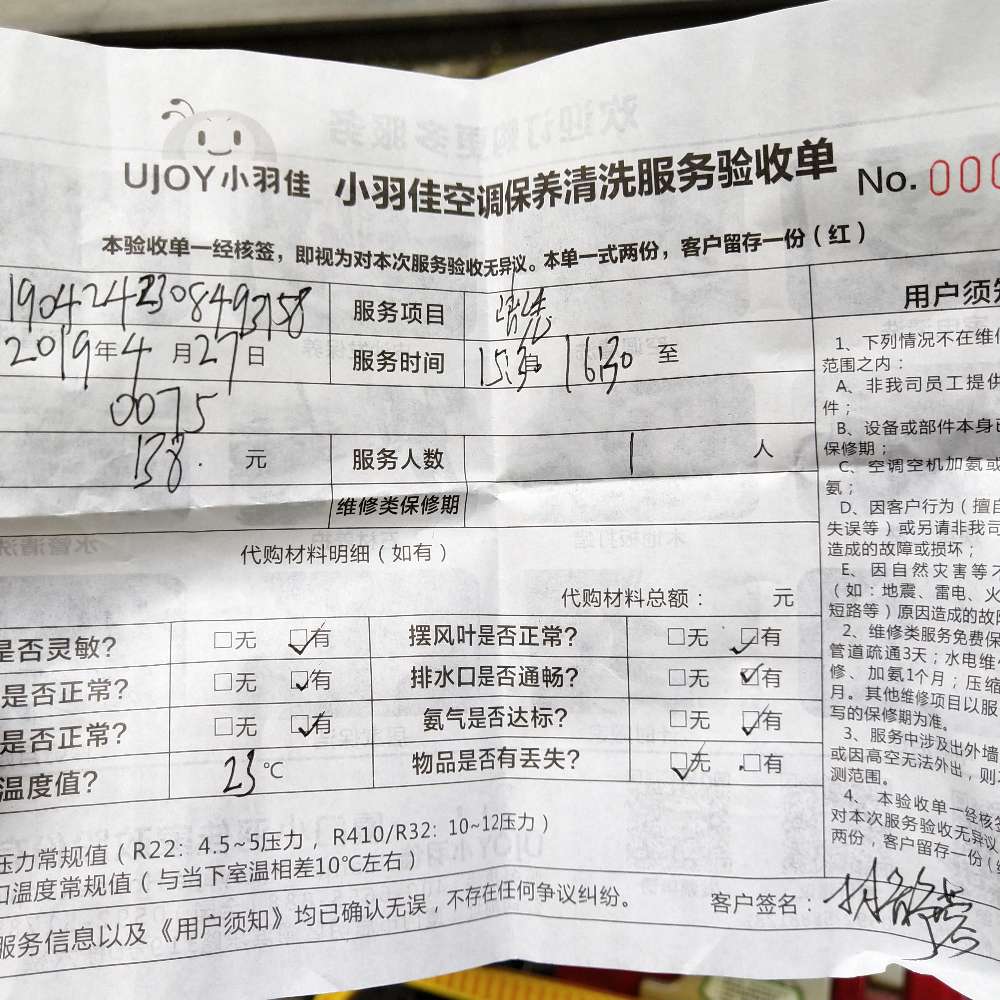 UJOY小羽佳 小羽佳空调保养清洗服务验收单 No. 000
本验收单一经核签，即视为对本次服务验收无异议。本单一式两份，客户留存一份（红）
1904242308493158 服务项目 清洗
2019年4月27日 服务时间 15:30 16:30 至
0075
138. 元 服务人数 1 人
维修类保修期
代购材料明细（如有）
代购材料总额： 元
是否灵敏？ □无 □有 摆风叶是否正常？ □无 □有
是否正常？ □无 □有 排水口是否通畅？ □无 □有
是否正常？ □无 □有 氨气是否达标？ □无 □有
温度值？ 23 ℃ 物品是否有丢失？ □无 □有
压力常规值（R22：4.5~5压力，R410/R32：10~12压力）
口温度常规值（与当下室温相差10℃左右）
服务信息以及《用户须知》均已确认无误，不存在任何争议纠纷。 客户签名：
用户须知
1、下列情况不在维修
范围之内：
A、非我司员工提供
件；
B、设备或部件本身已
保修期；
C、空调空机加氨或
氨；
D、因客户行为（擅自
失误等）或另请非我司
造成的故障或损坏；
E、因自然灾害等不
（如：地震、雷电、火
短路等）原因造成的故障
2、维修类服务免费保
管道疏通3天；水电维
修、加氨1个月；压缩
月。其他维修项目以服
写的保修期为准。
3、服务中涉及出外墙
或因高空无法外出，则
测范围。
4、本验收单一经核签
对本次服务验收无异议
两份，客户留存一份（红